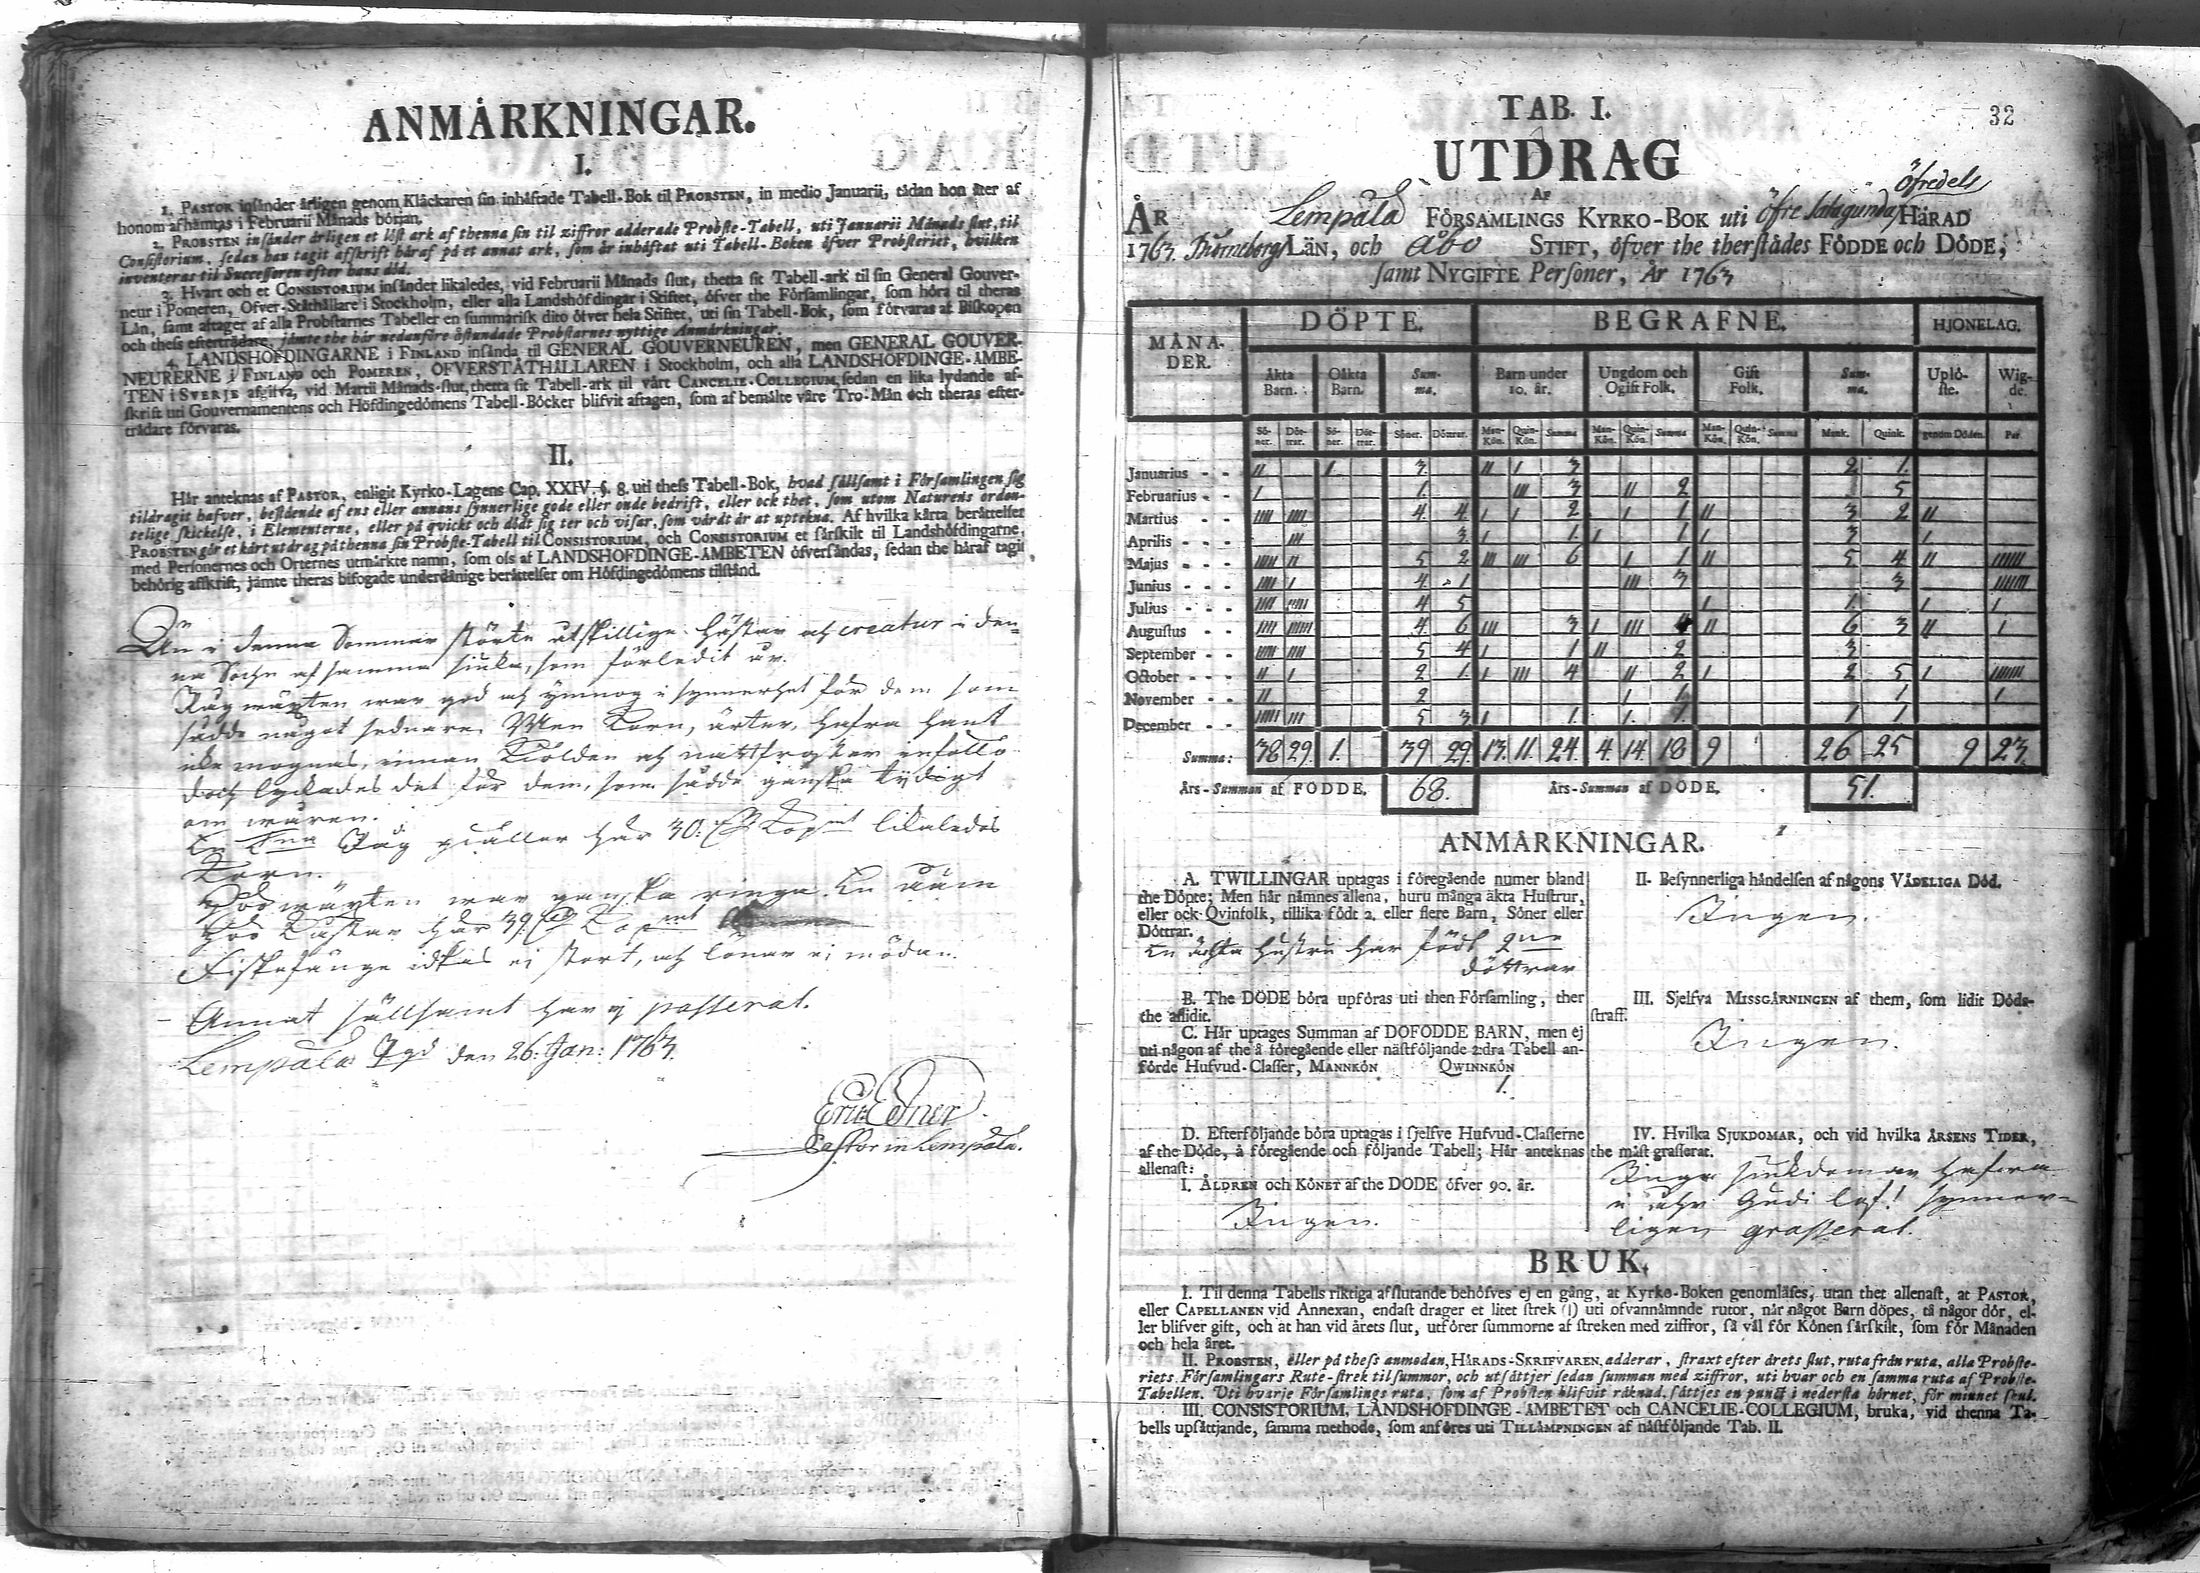 ANMÄRKNINGAR.
I.
1. PASTOR insänder årligen genom Klåckaren sin inhäftade Tabell-Bok til PROBSTEN, in medio Januarii, tådan hon åter af
honom afhämtas i Februarii Månads början.
2. PROBSTEN insänder årligen et löst ark af thenna sin til ziffror adderade Probste-Tabell, uti Januarii Månads slut, til
Consistorium, sedan han tagit afskrift häraf på et annat ark, som är inhäftat uti Tabell-Boken öfver Probsteriet, hvilken
inventeras til Successoren efter hans död.
3. Hvart och et CONSISTORIUM insänder likaledes, vid Februarii Månads slut, thetta sit Tabell-ark til sin General Gouver-
neur i Pomeren, Öfver-Ståthållare i Stockholm, eller alla Landshöfdingar i Stiftet, öfver the Församlingar, som höra til theras
Län, samt aftager af alla Probstarnes Tabeller en summarisk dito öfver hela Stiftet, uti sin Tabell-Bok, som förvaras af Biskopen
och thess efterträdare, jämte the här nedanföre åstundade Probstarnes nyttige Anmärkningar.
4. LANDSHÖFDINGARNE i FINLAND insända til GENERAL GOUVERNEUREN, men GENERAL GOUVER-
NEURERNE i FINLAND och POMEREN, ÖFVERSTÅTHÅLLAREN i Stockholm, och alla LANDSHÖFDINGE-ÄMBE-
TEN i SVERJE afgifva, vid Martii Månads-slut, thetta sit Tabell-ark til vårt CANCELIE-COLLEGIUM, sedan en lika lydande af-
skrift uti Gouvernamentens och Höfdingedömens Tabell-Böcker blifvit aftagen, som af bemälte våre Tro-Män och theras efter-
trädare förvaras.
II.
Här anteknas af PASTOR, enligit Kyrko-Lagens Cap. XXIV. §. 8. uti thess Tabell-Bok, hvad sällsamt i Församlingen sig
tildragit hafver, bestående af ens eller annans synnerlige gode eller onde bedrift, eller ock thet, som utom Naturens orden-
telige skickelse, i Elementerne, eller på qvickt och dödt sig ter och visar, som värdt är at uptekna. Af hvilka kårta berättelser
PROBSTEN gör et kårt utdrag på thenna sin Probste-Tabell til CONSISTORIUM, och CONSISTORIUM et särskilt til Landshöfdingarne,
med Personernes och Orternes utmärkte namn, som oss af LANDSHÖFDINGE-ÄMBETEN öfversändas, sedan the häraf tagit
behörig affkrift, jämte theras bifogade underdånige berättelser om Höfdingedömens tilstånd.
Än i denna Sommar störte utskillige hästar och creatur i den-
na Sochn af samma siuka, som förledit år.
Rug wäxten war god och ymnog i synnerhet för dem som
sådde något sednare. Men Korn, ärter, hafra hant
icke mognas, innan Kiölden och nattfroster infölle
doch lyckades det för dem, som sådde ganska tydigt
om wåren.
En Tna Råg gäller här 30. Kopmt likaledes
Korn.
Höö wäxten war ganska ringa. En
Höö kastar här 39. Kopmt
Fiskefänge idkas ei stort, och lönar ei mödan.
Annat sällsamt har ej passerat.
Lempälä Pgd den 26. Jan: 1763.
Eric Edner
Pastor in Lempälä.
32
TAB. I.
UTDRAG
AF
ÅR Lempälä FÖRSAMLINGS KYRKO-BOK uti Öfre Satagunda Öfredels HÄRAD
1763. Biörneborgs LÄN, och Åbo STIFT, öfver the therstädes FÖDDE och DÖDE,
samt NYGIFTE Personer, År 1763
MÅNA-DER. DÖPTE. BEGRAFNE. HJONELAG.
Äkta Barn. Oäkta Barn. Summa. Barn under 10. år. Ungdom och Ogift Folk. Gift Folk. Summa. Uplö-ste. Wig-de.
Sö-ner. Döt-trar. Sö-ner. Döt-trar. Söner. Döttrar. Man-Kön. Quin-Kön. Summa Man-Kön. Quin-Kön. Summa Man-Kön. Quin-Kön. Summa Mank. Quink. genom Döden. Par
Januarius - - II I. 3. II I 3 2 1.
Februarius - - I 1. III 3 II 2 5
Martius - - IIII IIII 4. 4 I I 2. I 1 II 3 2 II
Aprilis - - III 3. I 1. I 1 I 3 I
Majus - - IIIII II 5 2 III III 6 I 1 II 5 4 II
Junius - - IIII I 4. 1 III 3 3
Julius - - IIII IIIII 4 5 I 1. I I
Augustus - - IIII IIIIII 4. 6 III 3 I III 4 II 6 3 II I
September - - IIIII IIII 5 4 I 1 II 2 3
October - - II I 2 1. I III 4 II 2 I 2 5 I
November - - II 2 I 1 1 I
December - - IIIII III 5 3 I 1. I. 1. 1 1
Summa: 38 29. 1. 39 29. 13. 11. 24. 4. 14. 18 9 26 25 9 23.
Års-Summan af FÖDDE. 68. Års-Summan af DÖDE. 51.
ANMÄRKNINGAR.
A. TWILLINGAR uptagas i föregående numer bland
the Döpte; Men här nämnes allena, huru många äkta Hustrur,
eller ock Qvinfolk, tillika födt 2. eller flere Barn, Söner eller
Döttrar.
En ächta hustru har födt 2ne
döttrar
B. The DÖDE böra upföras uti then Församling, ther
the aflidit.
C. Här uptages Summan af DÖFÖDDE BARN, men ej
uti någon af the å föregående eller nästföljande 2:dra Tabell an-
förde Hufvud-Classer, MANNKÖN QWINNKÖN
1.
D. Efterföljande böra uptagas i sjelfve Hufvud-Classerne
af the Döde, å föregående och följande Tabell; Här anteknas
allenast:
I. ÅLDREN och KÖNET af the DÖDE öfver 90. år.
Ingen.
II. Besynnerliga händelsen af någons VÅDELIGA Död.
Ingen.
III. Sjelfva MISSGÄRNINGEN af them, som lidit Döds-
straff.
Ingen.
IV. Hvilka SJUKDOMAR, och vid hvilka ÅRSENS TIDER,
the mäst grasserat.
Inga siukdomar hafwa
i åhr Gudi lof! synner-
ligen grasserat.
BRUK.
I. Til denna Tabells riktiga afslutande behöfves ej en gång, at Kyrko-Boken genomläses, utan thet allenast, at PASTOR,
eller CAPELLANEN vid Annexan, endast drager et litet strek (|) uti ofvannämnde rutor, när något Barn döpes, tå någor dör, el-
ler blifver gift, och at han vid årets slut, utförer summorne af streken med ziffror, så väl för Könen särskilt, som för Månaden
och hela året.
II. PROBSTEN, eller på thess anmodan, HÄRADS-SKRIFVAREN, adderar, straxt efter årets slut, ruta från ruta, alla Probste-
riets Församlingars Rute-strek til summor, och utsättjer sedan summan med ziffror, uti hvar och en samma ruta af Probste-
Tabellen. Uti hvarje Församlings ruta, som af Probsten blifvit räknad, sättjes en punct i nedersta hörnet, för minnet skul.
III. CONSISTORIUM, LANDSHÖFDINGE-ÄMBETET och CANCELIE-COLLEGIUM, bruka, vid thenna Ta-
bells upsättjande, samma methode, som anföres uti TILLÄMPNINGEN af nästföljande Tab. II.